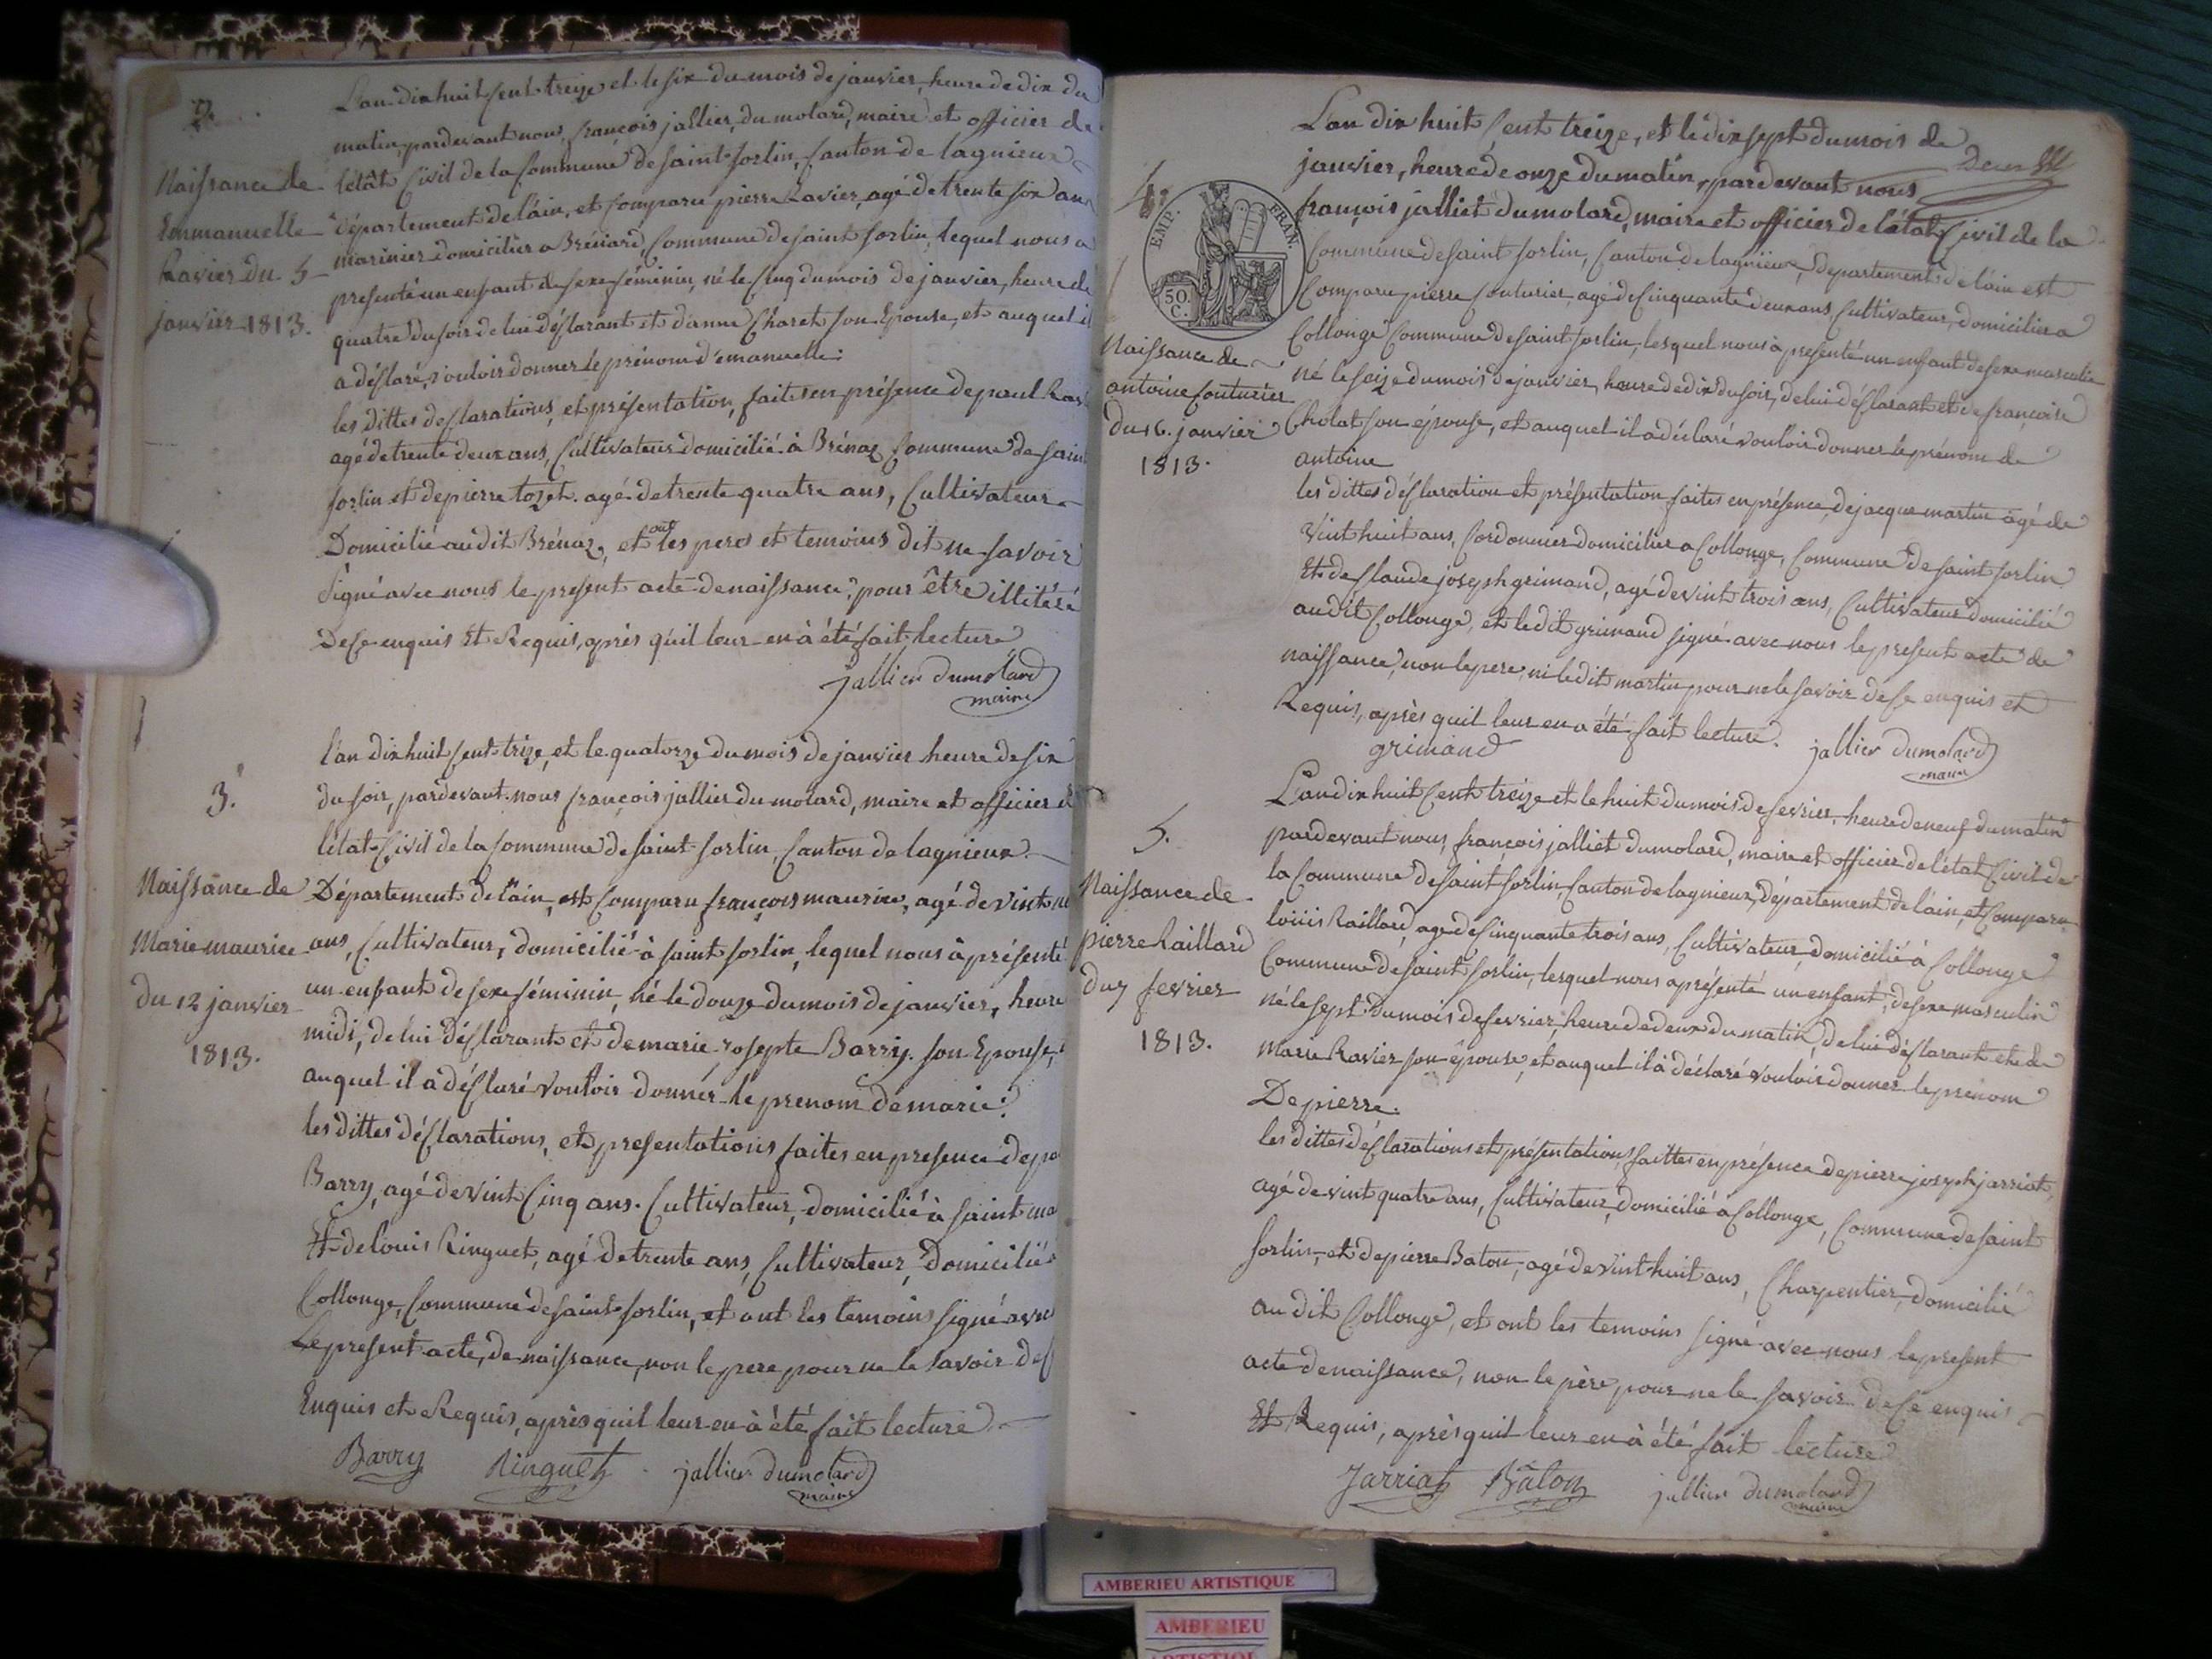 2.
Naissance de
Emmanuelle
Ravier du 5
janvier 1813.
L'an dix huit cent treize et le six du mois de janvier, heure de dix du
matin, pardevant nous, françois jallier, du molard, maire et officier de
l'étât Civil de la Commune de saint Sorlin, Canton de lagnieux
département de l'ain, et Comparu pierre Ravier, agé de trente six ans
marinier domicilier a Commune de saint Sorlin, lequel nous a
présenté un enfant de sexe féminin, né le Cinq du mois de janvier, heure de
quatre du soir de lui Déclarant et d'anne Charet son Epouse, et auquel il
a déclaré, vouloir donner le prénom d'emanuelle.
les dittes déclarations, et présentation, faites en présence de paul
agé de trente deux ans, Cultivateur domicilié à Brénaz Commune de sain
Sorlin et de pierre tozet. agé de trente quatre ans, Cultivateur
Domicilié audit Brénaz, et ont les pere et temoins dit ne savoir
signé avec nous le présent acte de naissance, pour être illitéré
De Ce enquis Et Requis, après qu'il leur en à été fait lecture
jallier dumolard
maire
3.
Naissance de
Marie maurice
du 12 janvier
1813.
l'an dix huit Cent trize, et le quatorze du mois de janvier heure de six
du soir, pardevant nous françois jallier du molard, maire et officier d
l'état Civil de la Commune de saint Sorlin, Canton de lagnieux
Département de l'ain, est Comparu françois maurice, agé de vint
ans, Cultivateur, domicilié à saint Sorlin, lequel nous à présenté
un enfant de sexe féminin, né le douze du mois de janvier, heure
midi, de lui Déclarant et de marie rosepte Barry. son Epouse,
auquel il a déclaré vouloir donner le prenom de marie.
les dittes déclarations, et presentations faites en presence de
Barry, agé de vint Cinq ans. Cultivateur, domicilié à saint
Et de louis Ringuet, agé de trente ans, Cultivateur, Domicilié
Collonge, Commune de saint Sorlin, et ont les temoins signé avec
Le present acte, de naissance, non le pere pour ne le savoir de
Enquis et Requis, après quil leur en à été fait lecture
Barry Ringuet jallier dumolard
maire
Deux
4.
EMP. FRAN.
50. C.
Naissance de
antoine Couturier
du 16. janvier
1813.
L'an dix huit Cent treize, et le dix sept du mois de
janvier, heure de onze du matin, pardevant nous
françois jalliet dumolard, maire et officier de l'état Civil de la
Commune de saint Sorlin, Canton de lagnieux, Département de l'ain est
Comparu pierre Couturier, agé de Cinquante deux ans, Cultivateur, domicilier a
Collonge Commune de saint Sorlin, lesquel nous à présenté un enfant de sexe masculin
né le seize du mois de janvier, heure de dix du soir, de lui déclarant et de françoise
Cholat son épouse, et auquel il a déclaré vouloir donner le prénom de
antoine
les dittes déclaration et présentation, faites en présence, de jacque martin âgé de
vint huit ans, Cordonnier domicilier a Collonge, Commune de saint Sorlin
Et de Claude joseph grimand, agé de vint trois ans, Cultivateur domicilié
audit Collonge, et le dit grimand signé avec nous le present acte de
naissance, non le pere, ni le dit martin pour ne le savoir de Ce enquis et
Requis, après quil leur en a été fait lecture.
grimand jallier dumolard
maire
5.
Naissance de
pierre Raillard
du 7 fevrier
1813.
L'an dix huit Cent treize et le huit du mois de fevrier, heure de neuf du matin
pardevant nous, françois jalliet dumolard, maire et officier de l'état Civil de
la Commune de saint Sorlin, Canton de lagnieux, Département de l'ain, et Comparu
louis Raillard, agé de Cinquante trois ans, Cultivateur, domicilié à Collonge
Commune de saint Sorlin, lesquel nous a présenté un enfant, de sexe masculin
né le sept du mois de fevrier, heure de deux du matin, de lui déclarant et de
Marie Ravier son épouse, et auquel il à déclaré vouloir donner le prénom
De pierre.
les dittes déclarations et présentations, faittes en présence de pierre joseph jarriat,
agé de vint quatre ans, Cultivateur, domicilié à Collonge, Commune de saint
Sorlin, et de pierre Baton, agé de vint huit ans, Charpentier, domicilié
au dit Collonge, et ont les temoins signé avec nous le present
acte de naissance, non le père, pour ne le savoir de Ce enquis
Et Requis, après quil leur en à été fait lecture
Jarriat Bâton jallier dumolard
maire
AMBERIEU ARTISTIQUE
AMBERIEU
ARTISTIQUE